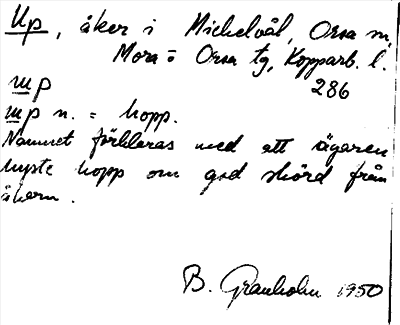 Up, åker i Mickelvål, Orsa sn,
Mora o Orsa tg, Kopparb. l.
286
up
up n. = hopp.
Namnet förklaras med att ägaren
hyste hopp om god skörd från
åkern.
B. Granholm 1950